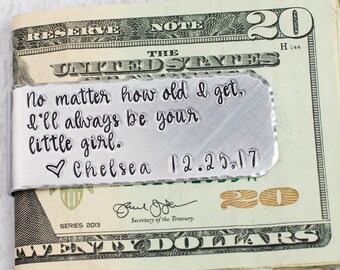 RESERVE NOTE
20
H 144
THE
UNITED STATES
No matter how old I get,
I'll always be your
little girl.
♡ Chelsea 12.25.17
SERIES 2013
Secretary of the Treasury.
20
TWENTY DOLLARS